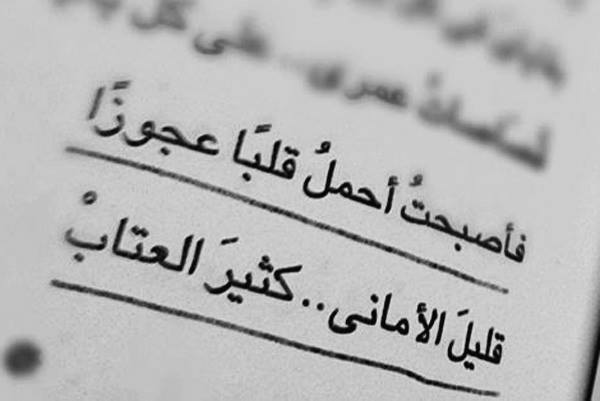 عمرى .. على كل
فأصبحتُ أحملُ قلبًا عجوزًا
قليلَ الأمانى .. كثيرَ العتابْ